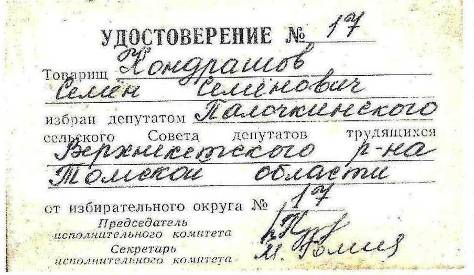 УДОСТОВЕРЕНИЕ № 17
Товарищ Кондрашов
Семён Семёнович
избран депутатом Палочкинского
сельского Совета депутатов трудящихся
Верхнекетского р-на
Томской области
от избирательного округа № 17
Председатель
исполнительного комитета
Секретарь
исполнительного комитета